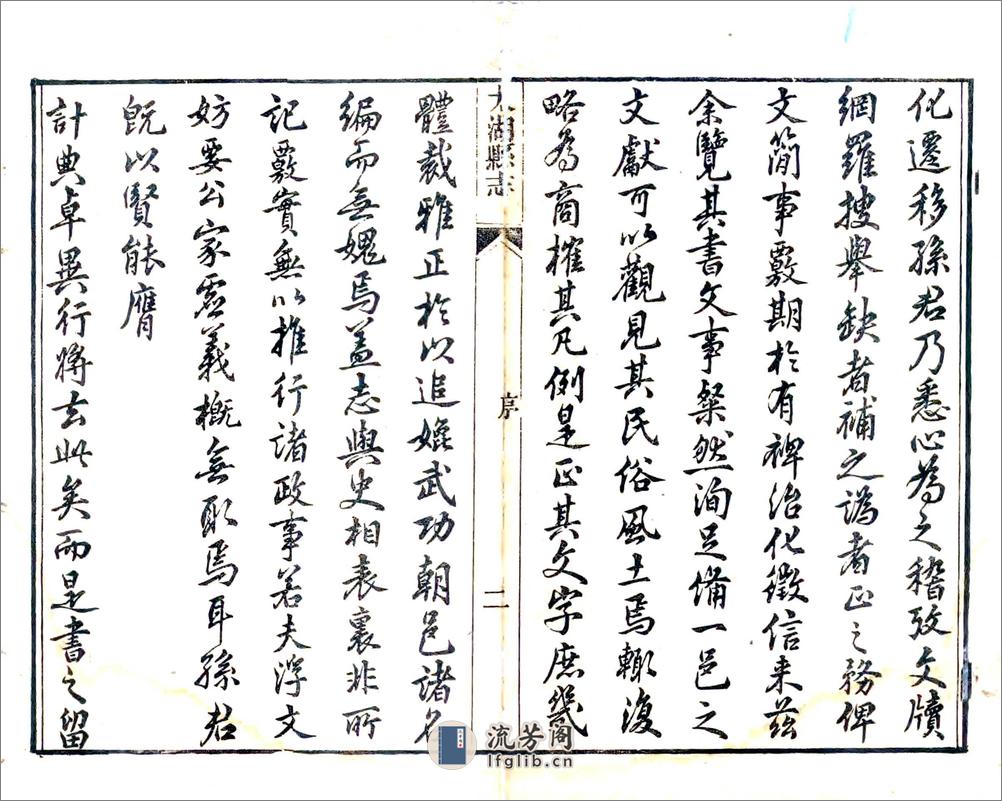 化遷移孫君乃悉心為之稽攷文牘
網羅搜舉缺者補之譌者正之務俾
文簡事覈期於有裨治化徵信来茲
余覽其書文事粲然洵足備一邑之
文獻可以觀見其民俗風土焉輙復
略為商搉其凡例是正其文字庶幾
太湖縣志
序
二
體裁雅正於以追媲武功朝邑諸名
編而無媿焉蓋志與史相表裏非所
記覈實無以推行諸政事若夫浮文
妨要公家虛義概無取焉耳孫君
既以賢能膺
計典卓異行將去此矣而是書之留
流芳阁
lfglib.cn